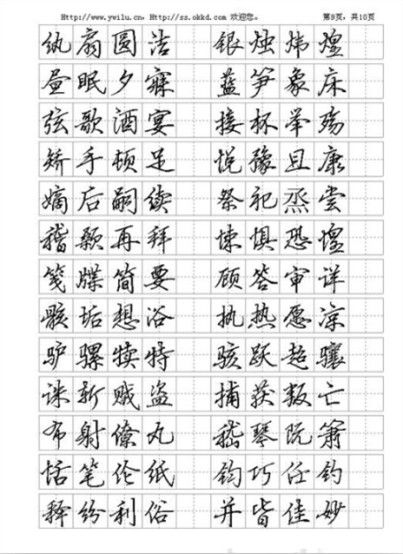 Http://www.ywilu.cn，Http://ss.okkd.com 欢迎您。 第9页，共10页
纨扇圆洁 银烛炜煌
昼眠夕寐 蓝笋象床
弦歌酒宴 接杯举殇
矫手顿足 悦豫且康
嫡后嗣续 祭祀烝尝
稽颡再拜 悚惧恐惶
笺牒简要 顾答审详
骸垢想浴 执热愿凉
驴骡犊特 骇跃超骧
诛斩贼盗 捕获叛亡
布射僚丸 嵇琴阮箫
恬笔伦纸 钧巧任钓
释纷利俗 并皆佳妙